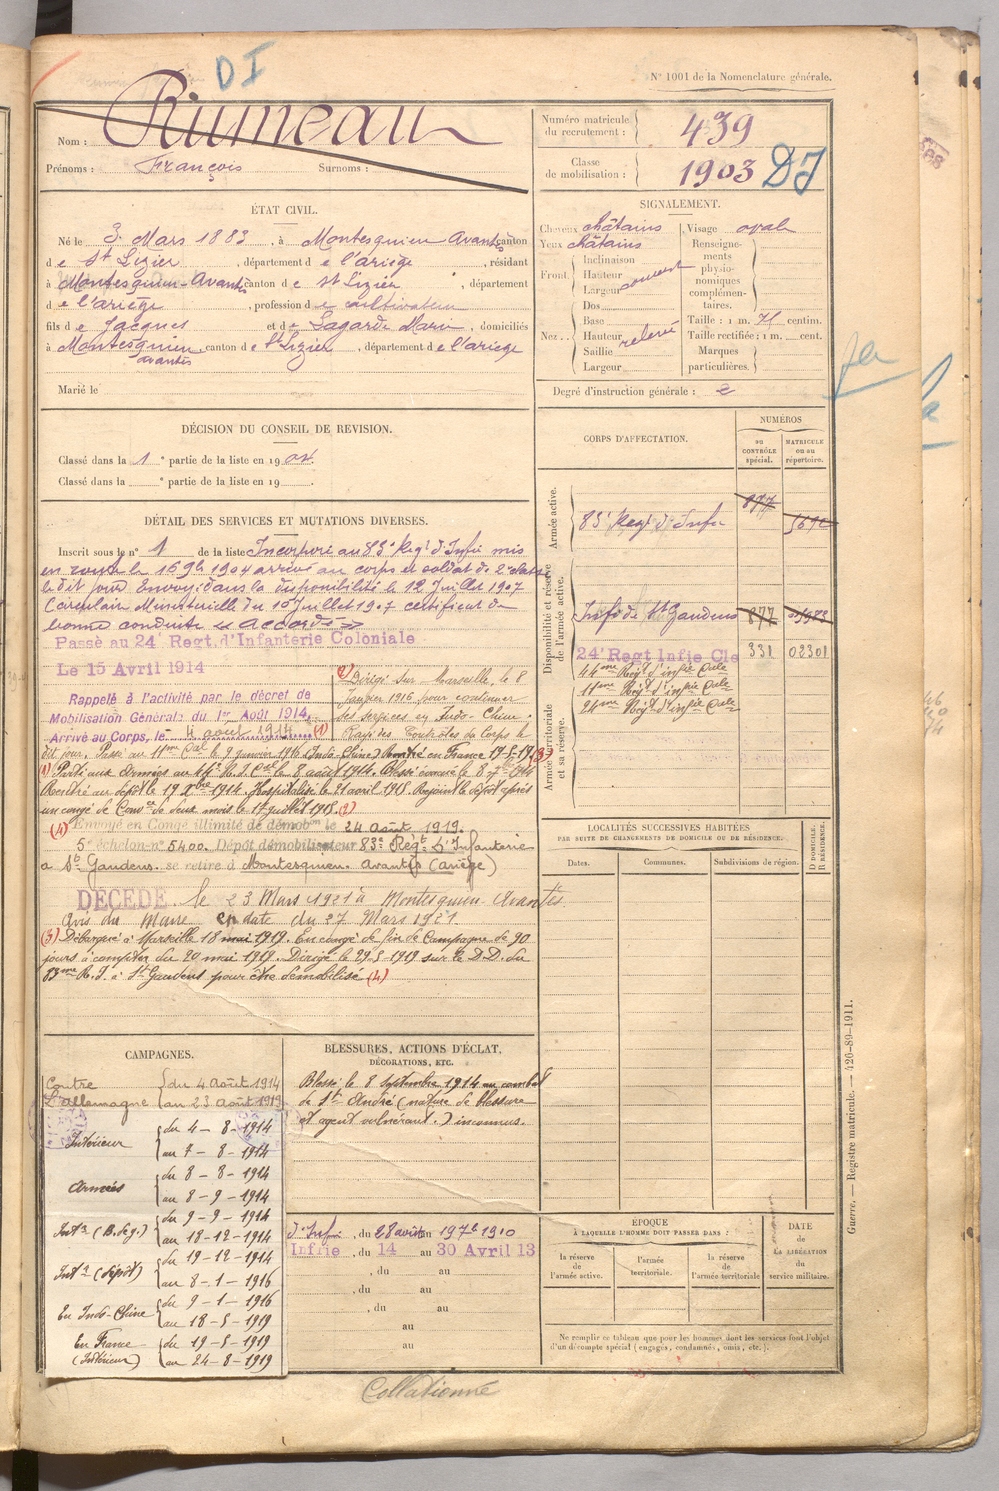 DI
N° 1001 de la Nomenclature générale.
Nom : Rumeau
Prénoms : François Surnoms :
Numéro matricule du recrutement : 439
Classe de mobilisation : 1903 DI
ÉTAT CIVIL.
Né le 3 Mars 1883, à Montesquieu Avantès canton
de St Lizier, département de l'ariège, résidant
à Montesquieu-Avantès canton de St Lizier, département
de l'ariège, profession de cultivateur
fils de Jacques et de Lagarde Marie, domiciliés
à Montesquieu avantès, canton de St Lizier, département de l'ariege
Marié le
SIGNALEMENT.
Cheveux châtains
Yeux châtains
Front. Inclinaison
Hauteur
Largeur couvert
Nez. Dos
Base
Hauteur relevé
Saillie
Largeur
Visage oval
Renseignements physionomiques complémentaires.
Taille : 1 m. 71 centim.
Taille rectifiée : 1 m. cent.
Marques particulières.
Degré d'instruction générale : 2
DÉCISION DU CONSEIL DE REVISION.
Classé dans la 1 e partie de la liste en 1904.
Classé dans la e partie de la liste en 19 .
DÉTAIL DES SERVICES ET MUTATIONS DIVERSES.
Inscrit sous le n° 1 de la liste Incorporé au 83e Régt d'Infie mis
en route le 16 9b 1904 arrivé au corps et soldat de 2e classe
le dit jour Envoyé dans la disponibilité le 12 Juillet 1907
Circulaire Ministerielle du 10 Juillet 1907 certificat de
bonne conduite « Accordé »
Passé au 24e Regt. d'Infanterie Coloniale
Le 15 Avril 1914
Rappelé à l'activité par le décret de
Mobilisation Générale du 1er Août 1914,
Arrivé au Corps, le 4 août 1914 (1)
(2) Dirigé sur Marseille, le 8
Janvier 1916 pour continuer
ses services en Indo-Chine.
Rayé des Contrôles du Corps le
dit jour. Passé au 11me Cal le 9 janvier 1916 (Indo-Chine) Rentré en France 19-5-19 (3)
(1) Parti aux Armées au 44e R.I.Cal le 8 août 1914. Blessé évacué le 8 7bre 1914
Rentré au dépôt le 19 Xbre 1914. Hospitalisé le 21 avril 1915. Rejoint le dépôt après
un congé de Convce de deux mois le 17 juillet 1915. (2)
(4) Envoyé en Congé illimité de démobon le 24 Août 1919.
5e échelon n° 5400. Dépôt démobilisateur 83e Régt d'Infanterie
a St Gaudens. se retire à Montesquieu. Avantès (Ariège)
DÉCÉDÉ le 23 Mars 1921 à Montesquieu Avantès
Avis du Maire en date du 27 Mars 1921
(3) Débarqué à Marseille 18 mai 1919. En congé de fin de Campagne de 90
jours à compter du 20 mai 1919. Dirigé le 29-5-1919 sur le D.D. du
83me R.I à St Gaudens pour être démobilisé (4)
CORPS D'AFFECTATION.
NUMÉROS
au CONTRÔLE spécial.
MATRICULE ou au répertoire.
Armée active.
83e Regt d'Infie 877
Disponibilité et réserve de l'armée active.
Infie de St Gaudens 877
24e Regt Infie Cle 331 02301
44me Régt d'infie Cale
11me Régt d'infie Cale
24me Régt d'infie Cale
Armée territoriale et sa réserve.
LOCALITÉS SUCCESSIVES HABITÉES
PAR SUITE DE CHANGEMENTS DE DOMICILE OU DE RÉSIDENCE.
Dates. Communes. Subdivisions de région. D DOMICILE. R RÉSIDENCE.
CAMPAGNES.
Contre L'allemagne du 4 Août 1914
au 23 Août 1919
Intérieur du 4 - 8 - 1914
au 7 - 8 - 1914
Armées du 8 - 8 - 1914
au 8 - 9 - 1914
Intr (B. Lég.) du 9 - 9 - 1914
au 18 - 12 - 1914
Intr (dépôt) du 19 - 12 - 1914
au 8 - 1 - 1916
En Indo-Chine du 9 - 1 - 1916
au 18 - 5 - 1919
En France (Intérieur) du 19 - 5 - 1919
au 24 - 8 - 1919
BLESSURES, ACTIONS D'ÉCLAT,
DÉCORATIONS, ETC.
Blessé, le 8 Septembre 1914 au combat
de St André (nature de blessure
et agent vulnérant.) inconnus.
d'Infie, du 28 août au 19 7b 1910
Infrie, du 14 au 30 Avril 13
, du au
, du au
, du au
au
au
ÉPOQUE
À LAQUELLE L'HOMME DOIT PASSER DANS :
la réserve de l'armée active.
l'armée territoriale.
la réserve de l'armée territoriale
DATE DE LA LIBÉRATION du service militaire.
Ne remplir ce tableau que pour les hommes dont les services font l'objet
d'un décompte spécial (engagés, condamnés, omis, etc.).
Guerre. — Registre matricule. — 420-89-1911.
Collationné